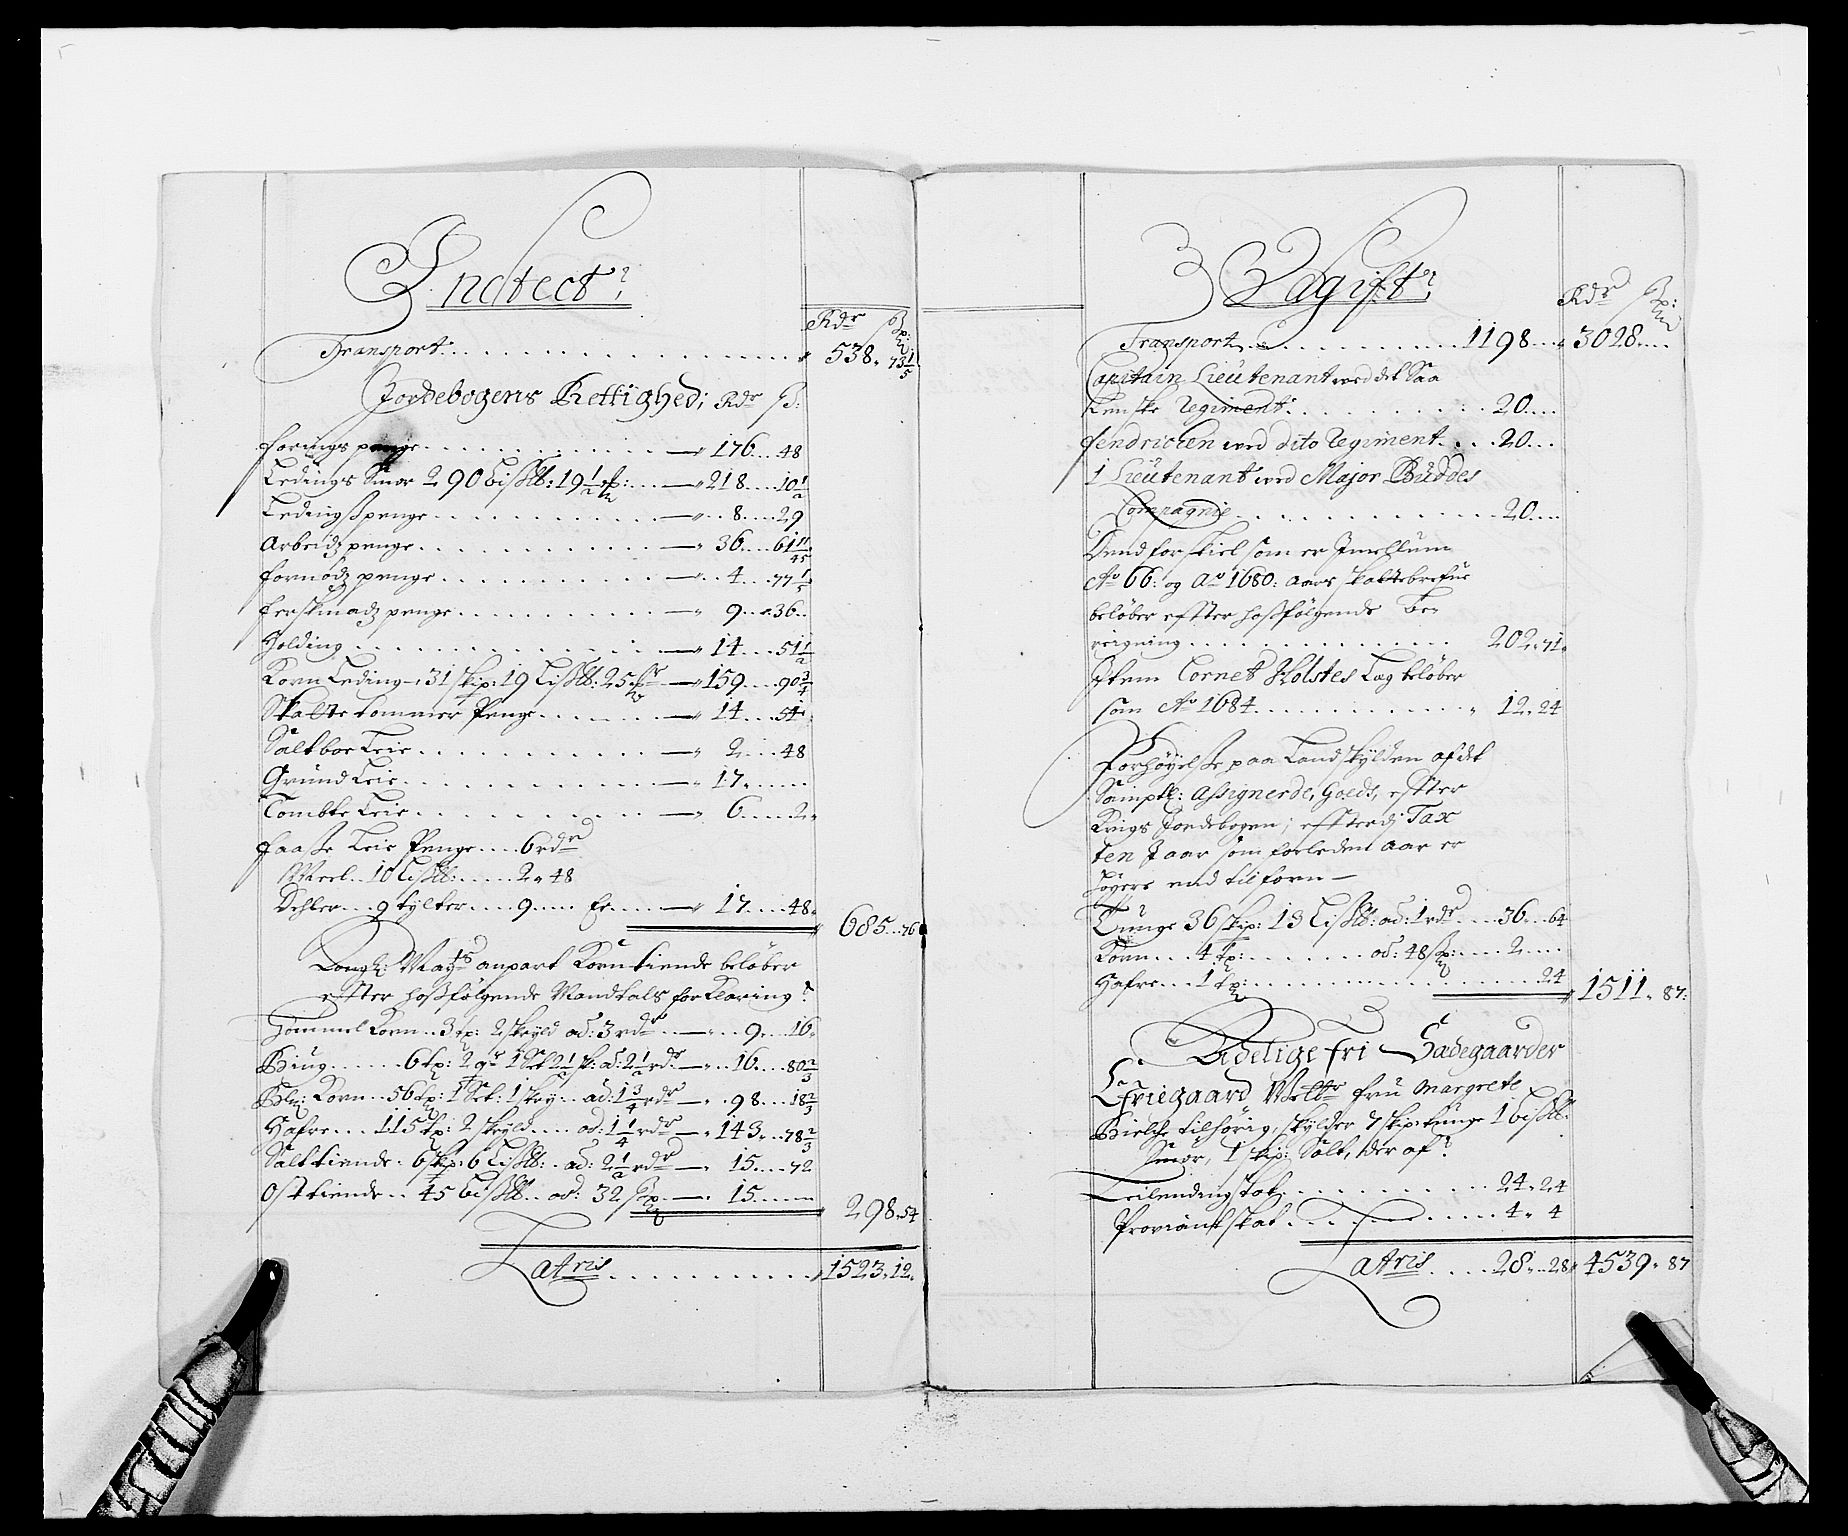 Indtect:
Rdr ß:
Transport . . . 538. 73 1/5
Jordebogens Rettighed; Rdr ß:
Forings penge . . . 176. 48
Ledings Smør 290 Bißlb: 19 1/2 . . . 218. 10 1/2
Ledingßpenge . . . 8. 29
Arbeidz penge . . . 36. 61 11/45
Fornødz penge . . . 4. 77 1/5
Ferskmadz penge . . . 9. 36
Holding . . . 14. 51 1/2
Korn Leding, 31 skip: 19 Lißlb: 25 . . . 159. 90 3/4
Skatte Tømmer Penge . . . 14. 51
Saltboe Leie . . . 2. 48
Grund Leie . . . 17.
Tombte Leie . . . 6. 2
Faaße Leie Penge . . 6 rdr
Meel . . 10 Lißlb: . . . 2. 48
Dehler . . 9 tylter . . 9 . . . Er . . . 17. 48. 685. 76
Kongl: Mayts anpart Korntiende beløber
effter hoßfølgende Mandtals forklaring:
Tømmel Korn . . 3 tp: 2 skeyd ad: 3 rdr . . 9. 16
Biug . . . 6 tp: 2 qr 1 Set 2 1/2 sk: ad: 2 1/2 rdr . . 16. 80 2/3
Bl: Korn . . 56 tp: 1 Set: 1 skey . . ad: 1 3/4 rdr . . 98. 18 2/3
Hafre . . 115 tp: 2 skeyd . . ad: 1 1/4 rdr . . 143. 78 2/3
Salttiende: 6 skip: 6 Lißlb: . . ad: 2 1/2 rdr . . 15. 72
Osttiende . . 45 Bißlb . . ad: 32 ß . . 15. 298. 54
Latris . . . 1523. 12.
Udgift:
Rdr ß:
Transport . . . 1198 . . . 3028.
Capitain Lieutenant ved det Saa
kenske Regiment . . . 20.
Fendrichen ved dito Regiment . . . 20.
1 Lieutenant ved Major Buddes
Compagnie . . . 20.
Dend forskiel som er Imellum
Ao 66: og Ao 1680: aars skattebrefue
beløber effter hoßfølgende Be-
reigning . . . 202. 71.
Item Cornet Holstes Lag beløber
som Ao 1684 . . . 12. 24
Forhøyelße paa Landskylden af det
Samptl: Assignerde, Goeds, effter
Krigs Jordebogen; effterdj Tax
ten J aar som forleden aar er
høyere end tilforn —
Tunge 36 skip: 13 Lißlb: ad: 1 rdr . . . 36. 64
Korn . . 4 tp: . . . ad: 48 ß: . . . 2.
Hafre . . 1 tp: . . . 24 1511. 87:
Adelige fri Sædegaarder
Friegaard Welbr fru Margrete
Bielche tilhørig, skylder 7 skip: tunge 1 Bißlb:
Smør, 1 skip: Salt, der af:
Leilendingskat . . . 24. 24
Proviantskat . . . 4. 4
Latris . . . 28. 28 4539. 87